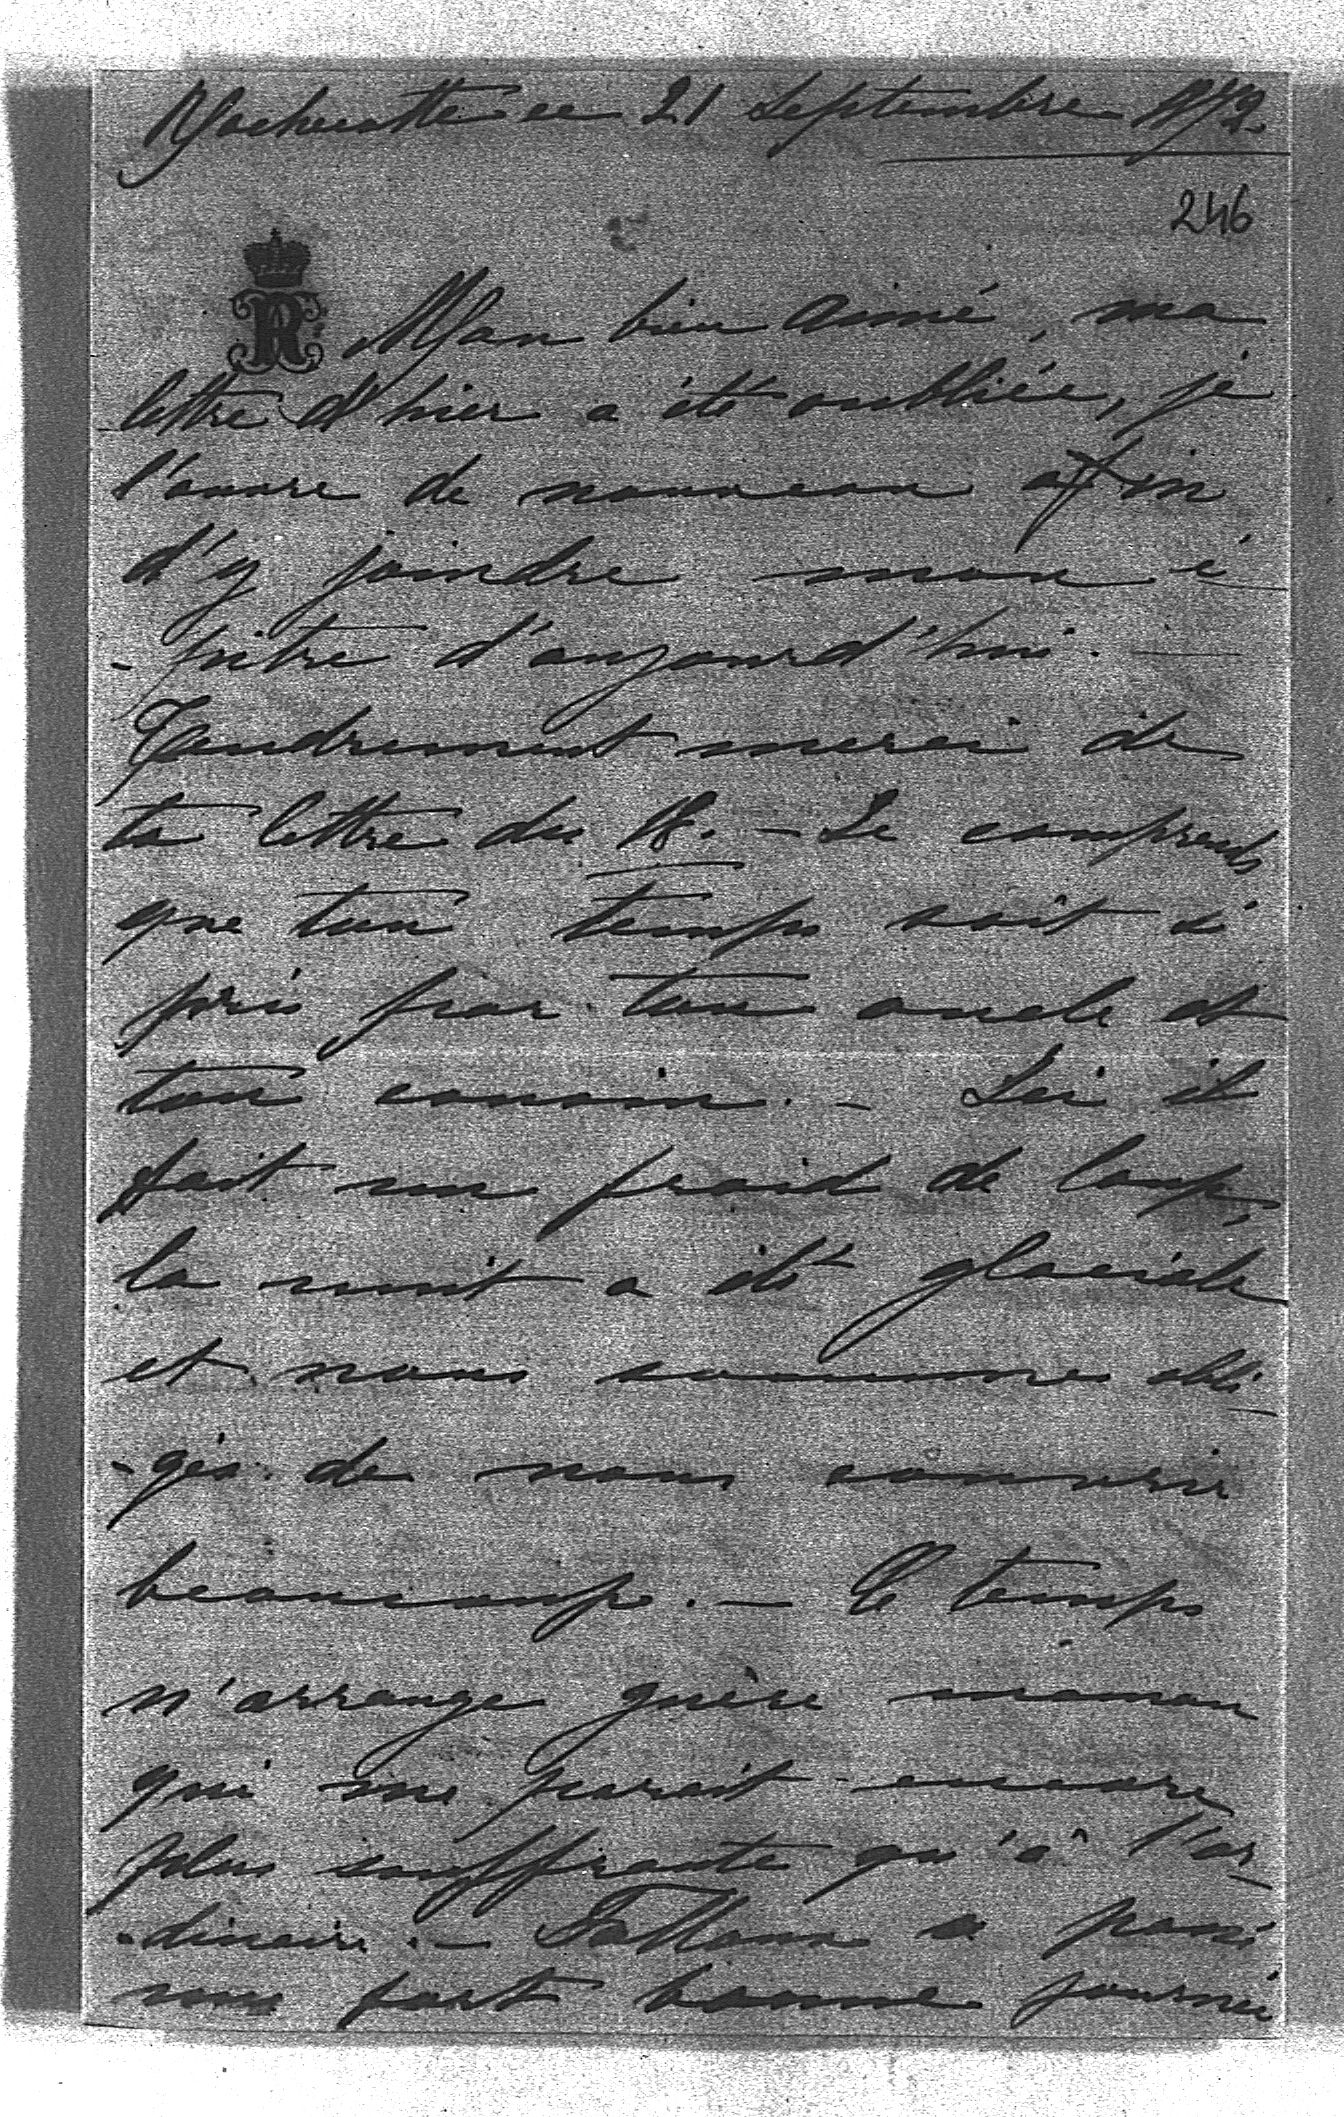 Rochecotte ce 21 Septembre 1879.
246
Mon bien aimé, ma
lettre d'hier a été oubliée, je
l'ouvre de nouveau afin
d'y joindre mon é
-pitre d'aujourd'hui. —
Tendrement merci de
ta lettre du 18. – Je comprends
que ton temps soit si
pris par ton oncle et
ton cousin. – Ici il
fait un froid de loup,
la nuit a été glaciale
et nous sommes obli
-gés de nous couvrir
beaucoup. – Ce temps
n'arrange guère maman
qui me parait encore
plus souffrante qu'à l'or
-dinaire. – a passé
une fort bonne journée